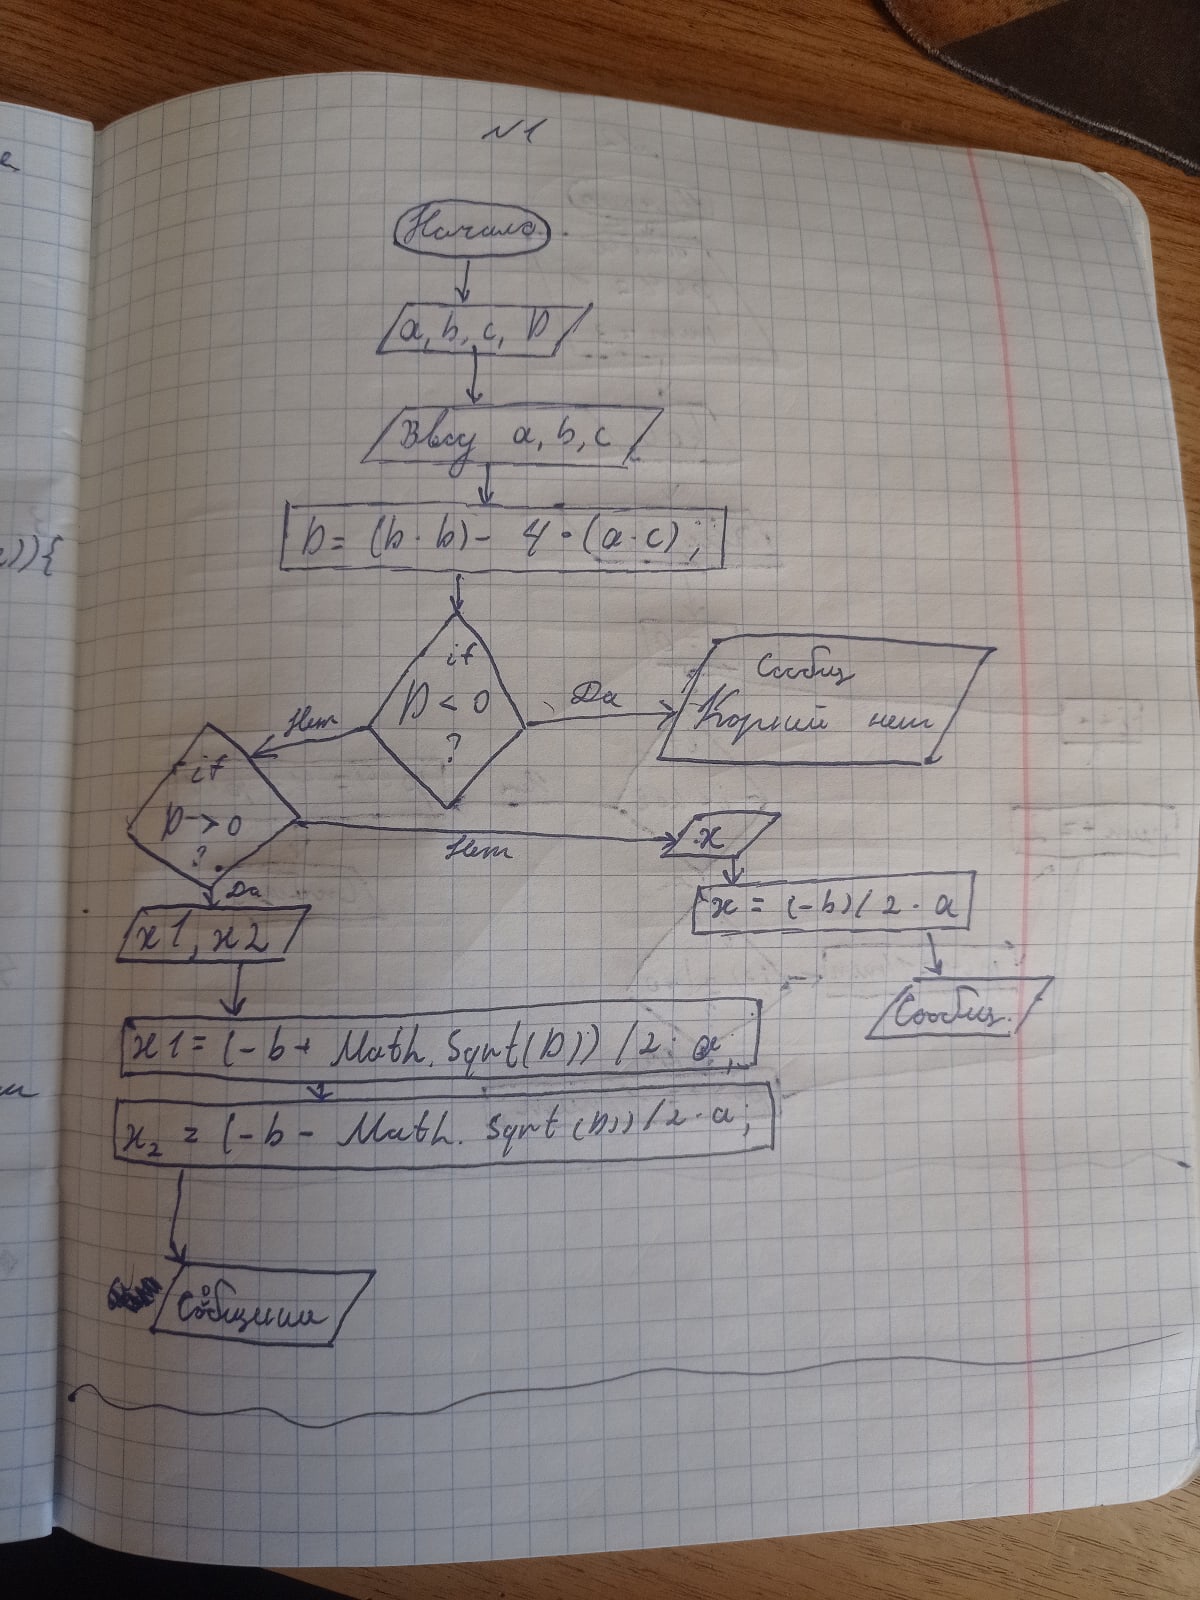 N1
Начало
a, b, c, D
Ввод a, b, c
D = (b · b) - 4 · (a · c);
if
D < 0
?
Да
Нет
Сообщ
Корний нет
if
D > 0
?
Нет
Да
x
x = (-b) / 2 · a
Сообщ.
x1, x2
x1 = (-b + Math. Sqrt(D)) / 2 · a;
x2 = (-b - Math. Sqrt(D)) / 2 · a;
)){